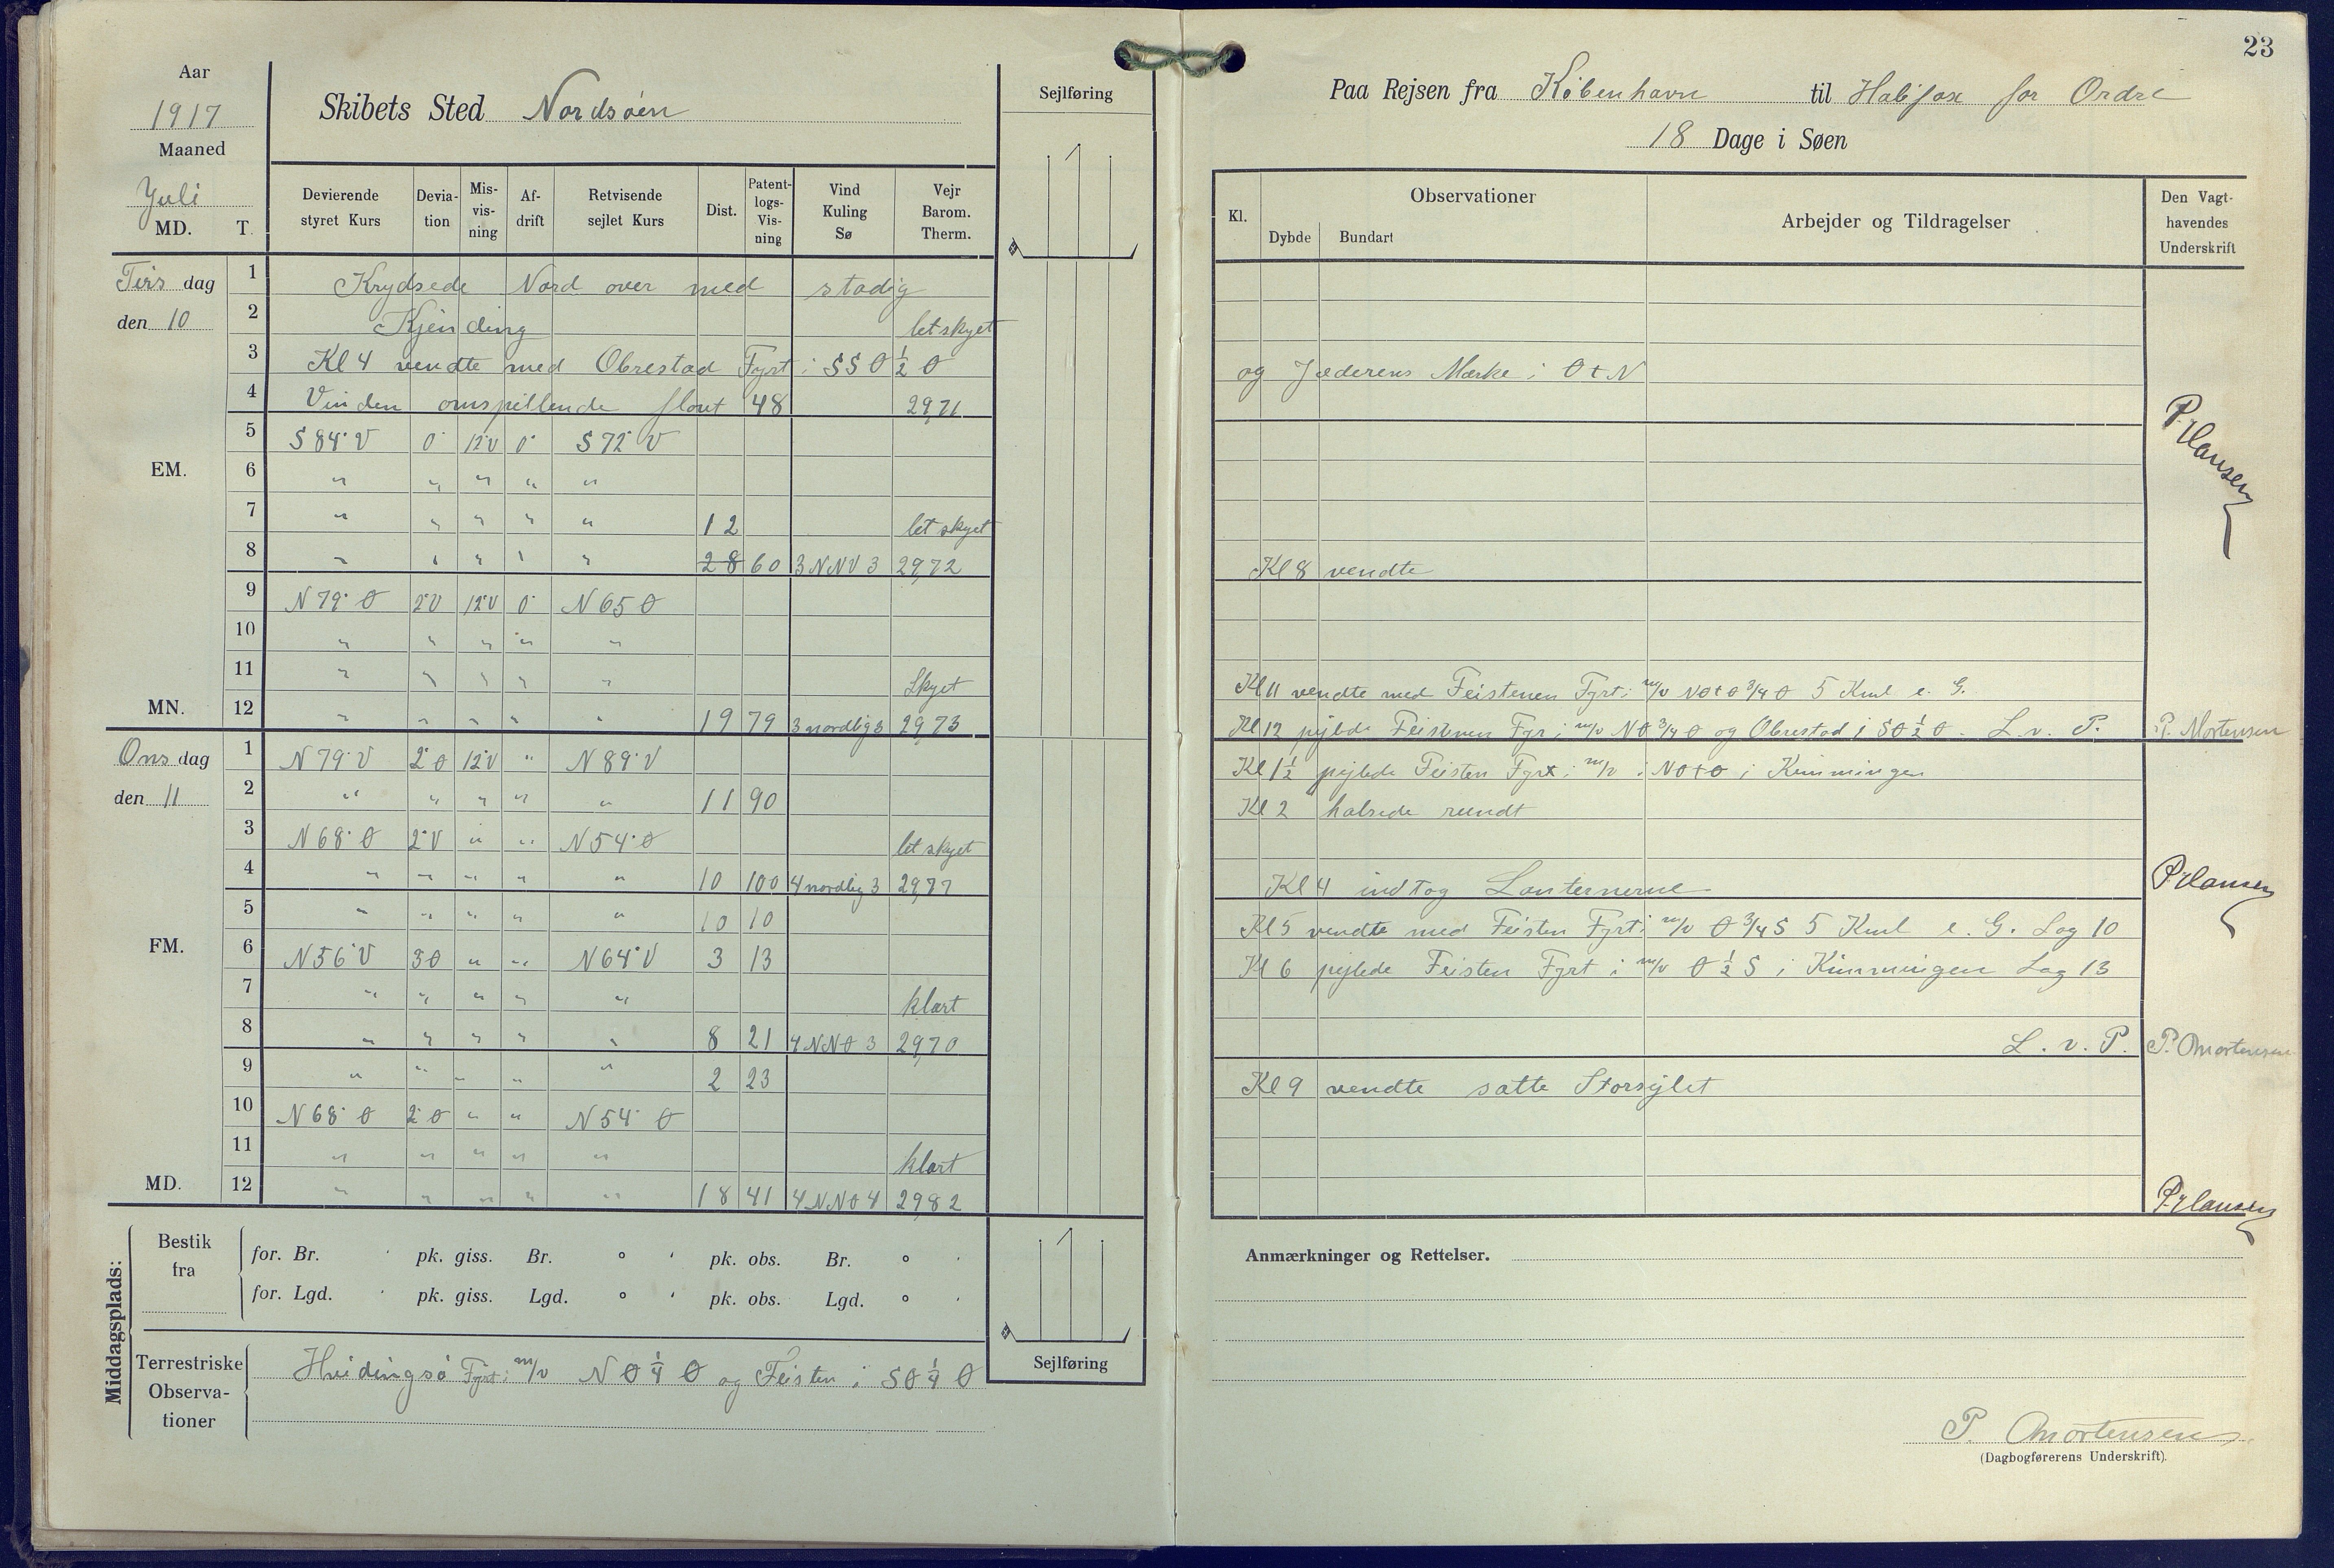 23
Aar
1917
Maaned
Juli
MD. T.
Skibets Sted Nordsøen
Sejlføring
Paa Rejsen fra København til Halifax for Ordre
18 Dage i Søen
Devierende styret Kurs | Deviation | Misvisning | Afdrift | Retvisende sejlet Kurs | Dist. | Patentlogs-Visning | Vind Kuling Sø | Vejr Barom. Therm.
Kl. | Observationer | Dybde | Bundart | Arbejder og Tildragelser | Den Vagthavendes Underskrift
Tirs dag 1 Krydsede Nord over med stadig
den 10 2 Kjending letskyet
3 Kl 4 vendte med Obrestad Fyrt i SSO ½ O og Jæderens Mærke i O t N
4 Vinden omspillende flout 48 29,71
5 S 84° V 0° 12°V 0° S 72° V
P. Hansen
EM. 6 " " " " "
7 " " " " " 12 let skyet
8 " " " " " 28 60 3 NNV 3 29,72 Kl 8 vendte
9 N 79° O 2°V 12°V 0° N 65 O
10 " " " " "
11 " " " " " Skyet Kl 11 vendte med Feistenen Fyrt i m/v NOtO ¾ O 5 Kml e. G.
MN. 12 " " " " " 19 79 3 nordlig 3 29,73 Kl 12 pejlde Feistenen Fyr i m/v NO ¾ O og Obrestad i SO ½ O. L. v. P. P. Mortensen
Ons dag 1 N 79° V 2°O 12°V " N 89° V Kl 1½ pejlede Feisten Fyrt i m/v i NOtO i Kimmingen
den 11 2 " " " " " 11 90 Kl 2 halsede rundt
3 N 68° O 2°V " " N 54° O let skyet
4 " " " " " 10 100 4 nordlig 3 29,77 Kl 4 indtog Lanternerne P. Hansen
5 " " " " " 10 10 Kl 5 vendte med Feisten Fyrt i m/v O ¾ S 5 Kml e. G. Log 10
FM. 6 N 56° V 3O " " N 64° V 3 13 Kl 6 pejlede Feisten Fyrt i m/v O ½ S i Kimmingen Log 13
7 " " " " " klart
8 " " " " " 8 21 4 NNO 3 29,70 L. v. P. P. Mortensen
9 " " " " " 2 23 Kl 9 vendte satte Storsejlet
10 N 68° O 2°O " " N 54° O
11 " " " " " klart
MD. 12 " " " " " 18 41 4 NNO 4 29,82 P. Hansen
Middagsplads:
Bestik fra
for. Br. ' pk. giss. Br. ° ' pk. obs. Br. ° '
for. Lgd. ' pk. giss. Lgd. ° ' pk. obs. Lgd. ° '
Terrestriske Observationer
Hvidingsø Fyrt i m/v NO ¼ O og Feisten i SO ¼ O
Sejlføring
Anmærkninger og Rettelser.
P. Mortensen
(Dagbogførerens Underskrift).